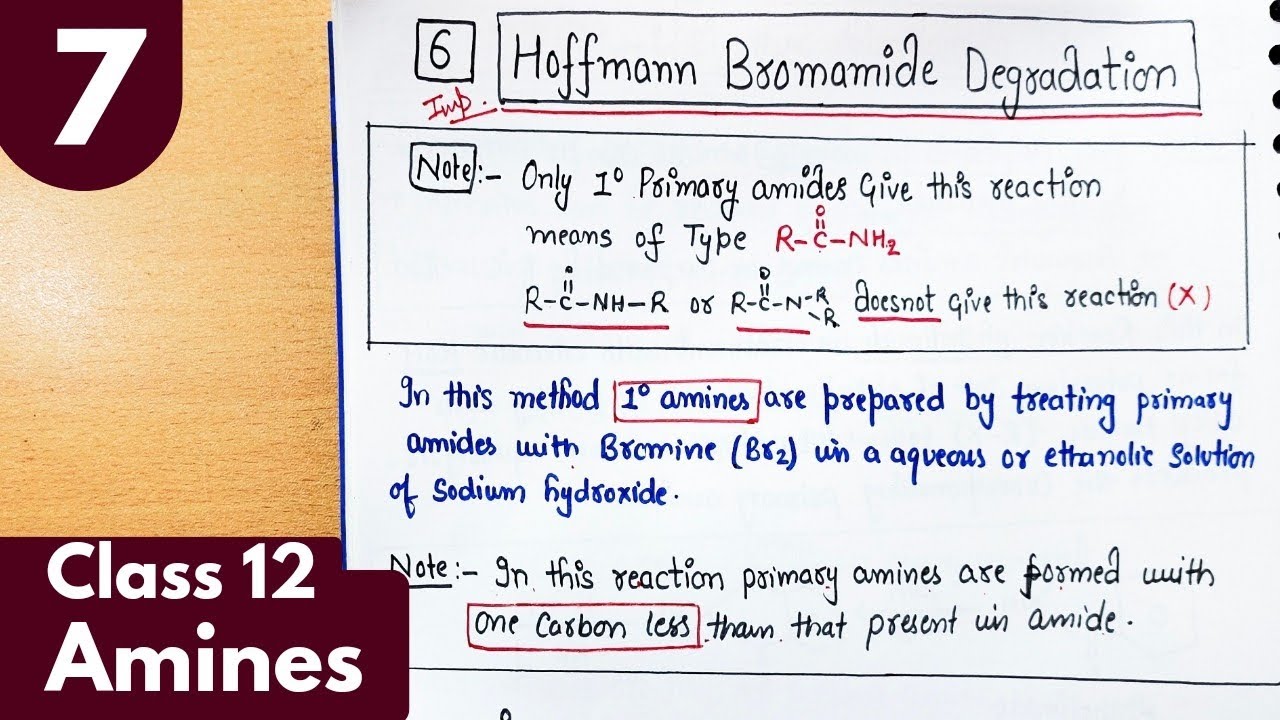 7
6 Hoffmann Bromamide Degradation
Imp.
Note:- Only 1° Primary amides Give this reaction
means of Type R-C-NH2
O
R-C-NH-R or R-C-N-R doesnot Give this reaction (X)
O O R
In this method 1° amines are prepared by treating primary
amides with Bromine (Br2) in a aqueous or ethanolic Solution
of Sodium hydroxide.
Note:- In this reaction primary amines are formed with
one Carbon less than that present in amide.
Class 12
Amines